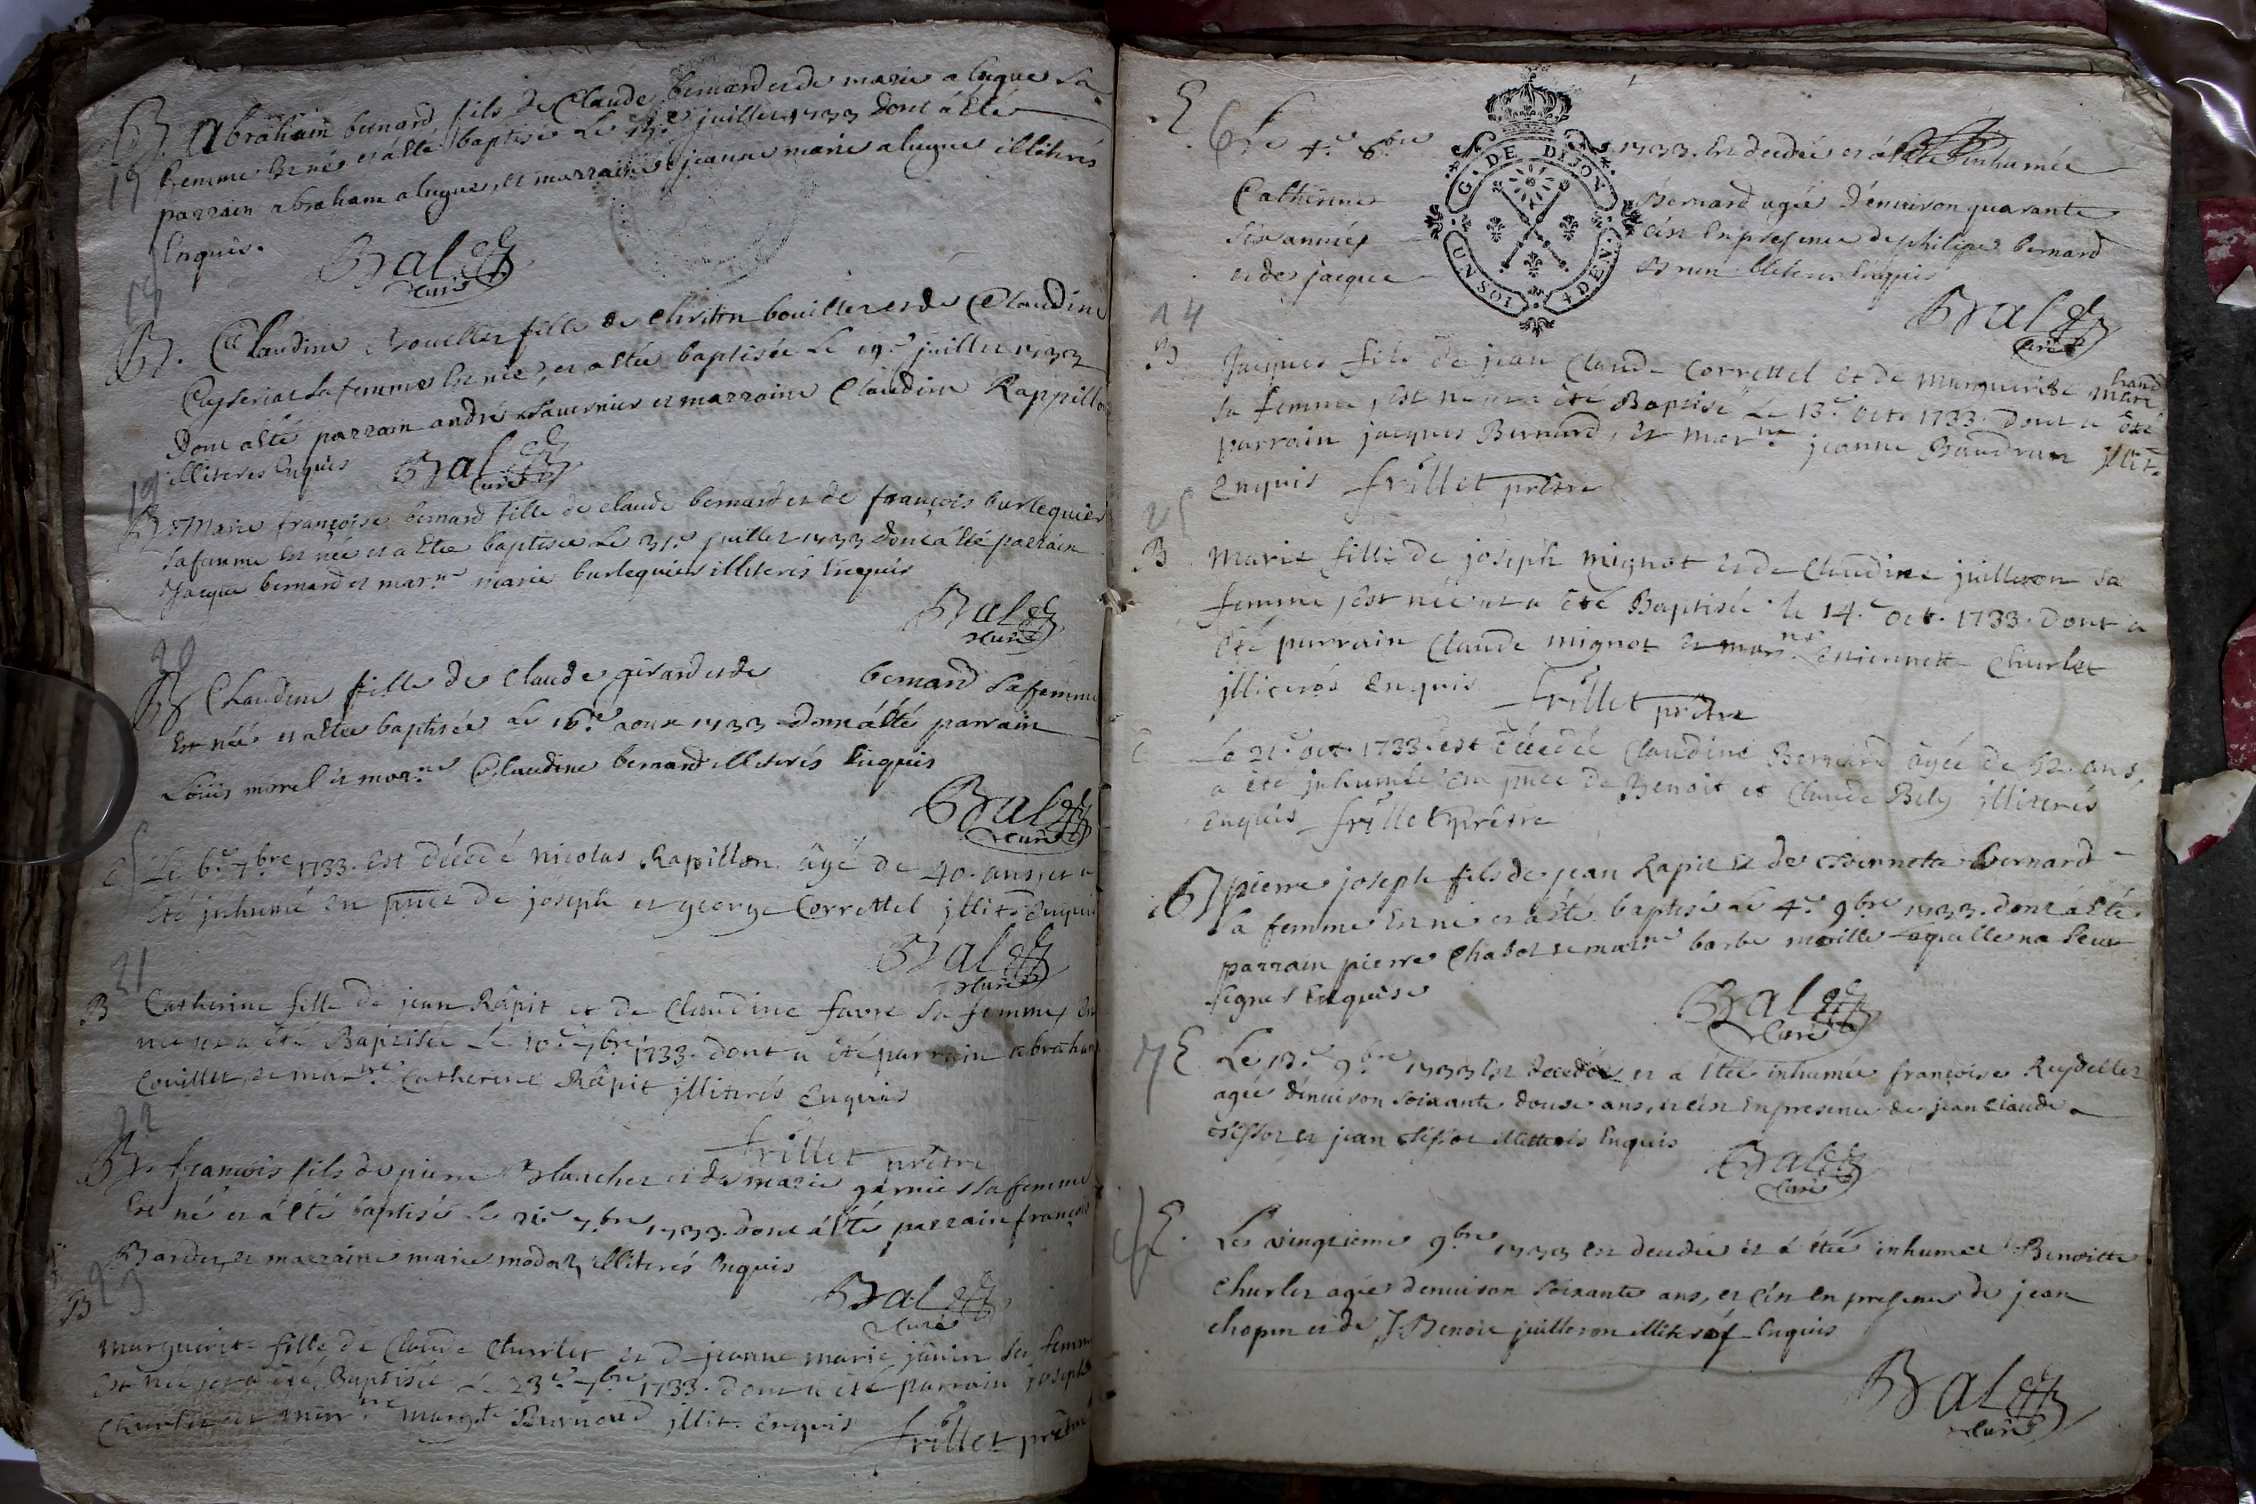 B. Abraham bernard fils de Claude bernard et de marie a lugue sa
17 femme est né et a été baptisé le juillet 1733 dont a été
parrain abraham a lugue et marraine jeanne marie a lugue illiterés
Enquis.
Bal
curé
18
B. Claudine bouillet fille de bouillet et de Claudine
sa femme est née, et a été baptisée le 19e juillet 1733
Dont a été parrain andré et marraine Claudine Rappillon
illiterés Enquis Bal
curé
19
B Marie françoise bernard fille de claude bernard et de françoise burlequier
sa femme est née et a été baptisée le 31e juillet 1733 dont a été parrain
Jacque bernard et marne marie burlequier illiterés Enquis
Bal
curé
20
B Claudine fille de claude girard et de bernard sa femme
Est née et a été baptisée le 16e aout 1733 dont a été parrain
Louis morel et marne Claudine bernard illiterés Enquis
Bal
curé
E Le 6e 7bre 1733. est décedé nicolas Rapillon âgé de 40. ans et a
été inhumé en pnce de joseph et george Correttel illit. enquis
Bal
curé
21
B Catherine fille de jean Râpit et de Claudine favre sa femme, est
née et a été Baptisée le 10e 7bre 1733. dont a été parrain abraham
Couillet, et marne Catherine Râpit illiterés enquis
frillet prêtre
22
B. francois fils de pierre Blanchet et de marie garnier sa femme
Est né et a été baptisé le 21e 7bre 1733. dont a été parrain francois
Bardet, et marraine marie modas, illiterés Enquis
Bal
curé
23
B
Marguerite fille de Claude Churlet et de jeanne marie janin sa femme
est née et a été Baptisée le 23e 7bre 1733. dont a été parrain joseph
Churlet et marrne margte illit. enquis frillet prêtre
E
6 Le 4e 8bre 1733. Est decedée et a été inhumée
Catherine Bernard agée d'environ quarante
six années c'est En presence de philipe bernard
et de jacque Brun illiterés Enquis
G. DE DIJON
UN SOL 4 DEN.
Bal
curé
24
B Jacques fils de jean Claude Correttel et de marguerite
sa femme, est né et a été Baptisé le 13e octe 1733. dont a été
parrain jacques Bernard, et marne jeanne Baudran illit.
enquis frillet prêtre
25
B Marie fille de joseph mignot et de Claudine juilleron sa
femme, est née et a été Baptisée le 14e oct. 1733. dont a
été parrain Claude mignot et marne estiennette Churlet
illiterés enquis frillet prêtre
E Le 21e oct. 1733. est décedée Claudine Bernard âgée de 52. ans,
a été inhumée en pnce de Benoit et Claude Bely illiterés
enquis frillet prêtre
B pierre joseph fils de jean Rapit et de bernard
sa femme Est né et a été baptisé le 4e 9bre 1733. dont a été
parrain pierre Chabot et marne barbe la quelle na sceu
signer Enquise
Bal
curé
7 E Le 13e 9bre 1733 Est decedée et a été inhumée françoise Reydellet
agée d'environ soixante douse ans, et c'est En presence de jean claude
tissot et jean tissot illiterés Enquis
Bal
curé
E. Le vingtieme 9bre 1733 est decedée et a été inhumée Benoitte
Churlet agée d'environ soixante ans, et c'est En presence de jean
chopin et de J. Benoit juilleron illiterés Enquis
Bal
curé